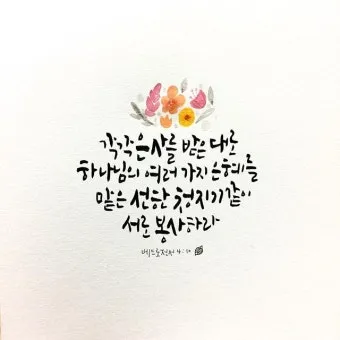 각각 은사를 받은 대로
하나님의 여러 가지 은혜를
맡은 선한 청지기같이
서로 봉사하라
베드로전서 4:10